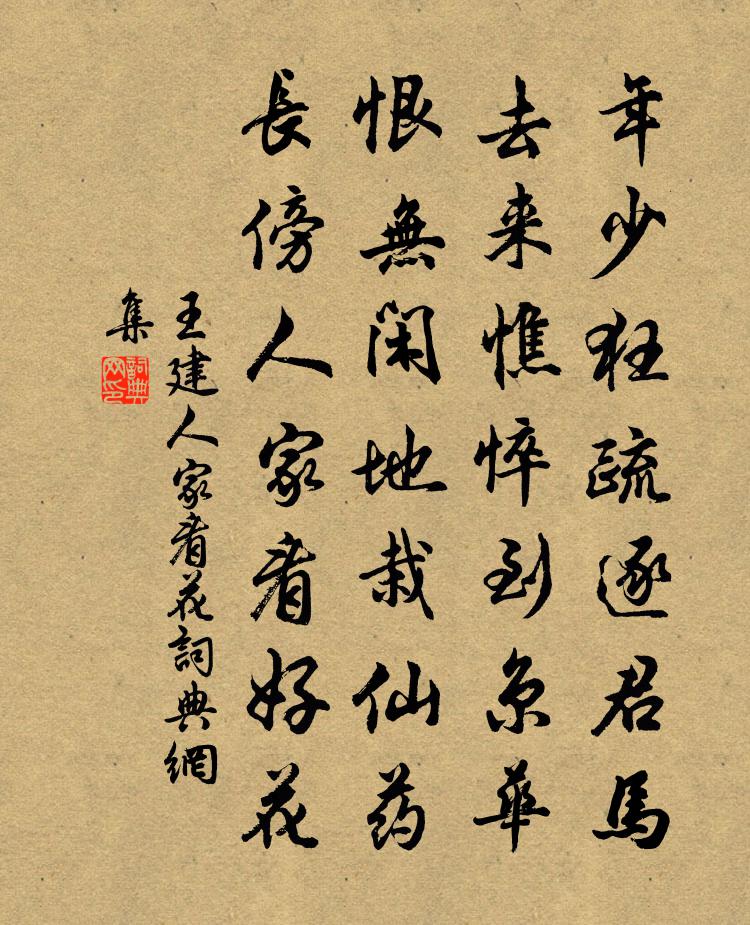 年少狂疏逐君馬
去来憔悴到京華
恨無閑地栽仙药
長傍人家看好花
王建人家看花詞典網
集
詞典
网印